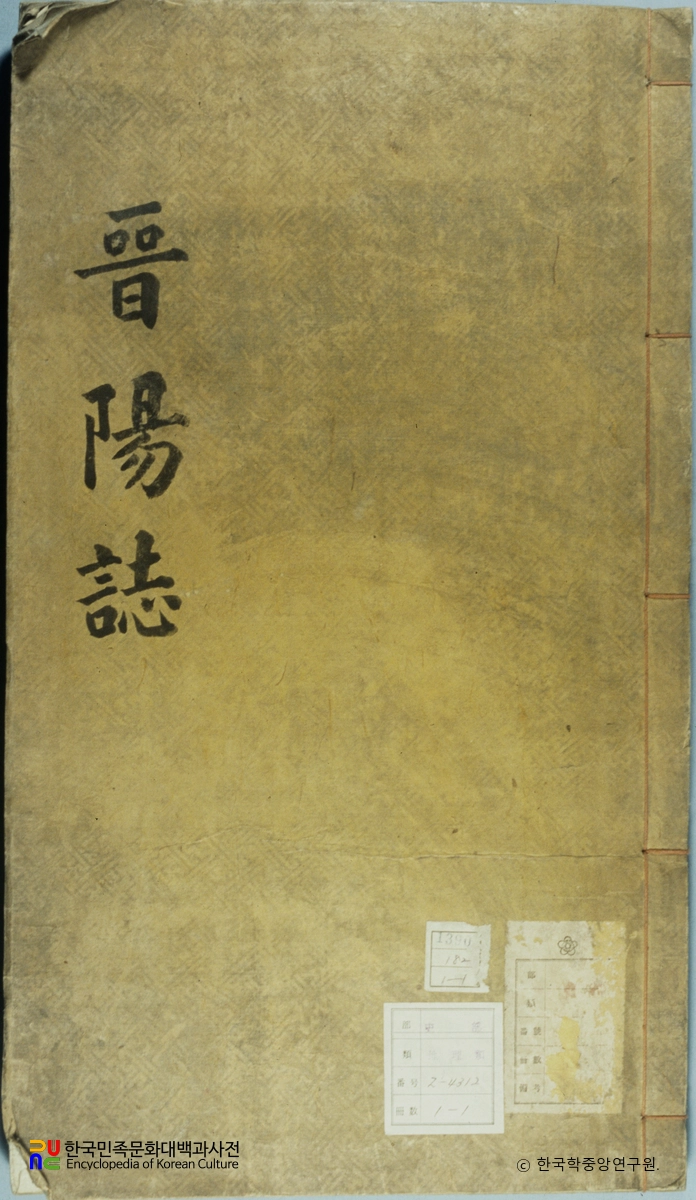 晉陽誌
182
1-1
番号 Z-4313
冊數 1-1
한국민족문화대백과사전
Encyclopedia of Korean Culture
© 한국학중앙연구원.